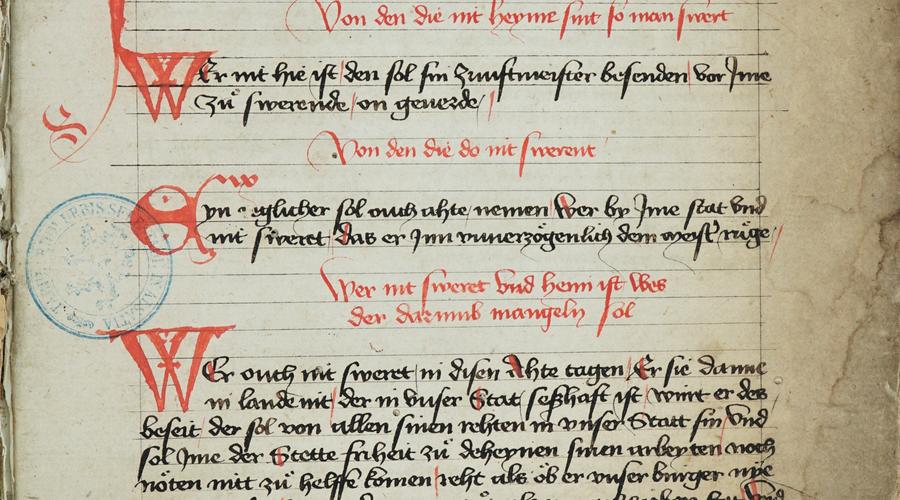 Von den die nit heyme sint so man swert
WEr nit hie ist den sol sin zunftmeister besenden vor Jme
Zů swerende on geuerde
Von den die do nit swerent
Eyn yeglicher sol ouch ahte nemen wer by Jme stat vnd
nit sweret das er Jnn vnuerzögenlich dem meist' rüge
Wer nit sweret vnd henn ist wes
der darumb mangeln sol
WEr ouch nit sweret in disen Ahte tagen Er sie danne
in lande nit der in vnser Stat seßhaft ist wirt er des
beseit der sol von allen sinen rehten in vnser Statt sin vnd
sol Jme der Stette friheit zů deheynen sinen arbeyten noch
nöten nit zů helffe komen reht als öb er vnser burger nye